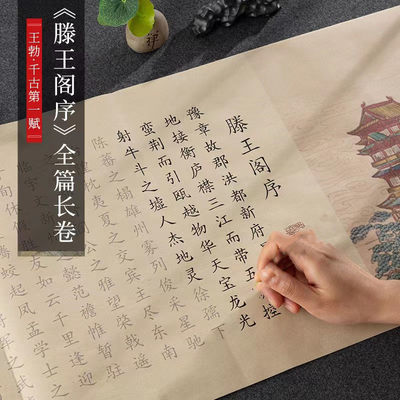 《滕王阁序》全篇长卷
王勃·千古第一赋
滕王阁序
豫章故郡洪都新府
地接衡庐襟三江而带五
控
蛮荆而引瓯越物华天宝龙光
射牛斗之墟人杰地灵徐孺
陈蕃之榻雄州雾列俊采星驰
枕夷夏之交宾主尽东南
之雅望棨戟遥
宇文新州之懿范襜帷暂驻
旬休胜友如云千里逢迎
蛟起凤孟学士之